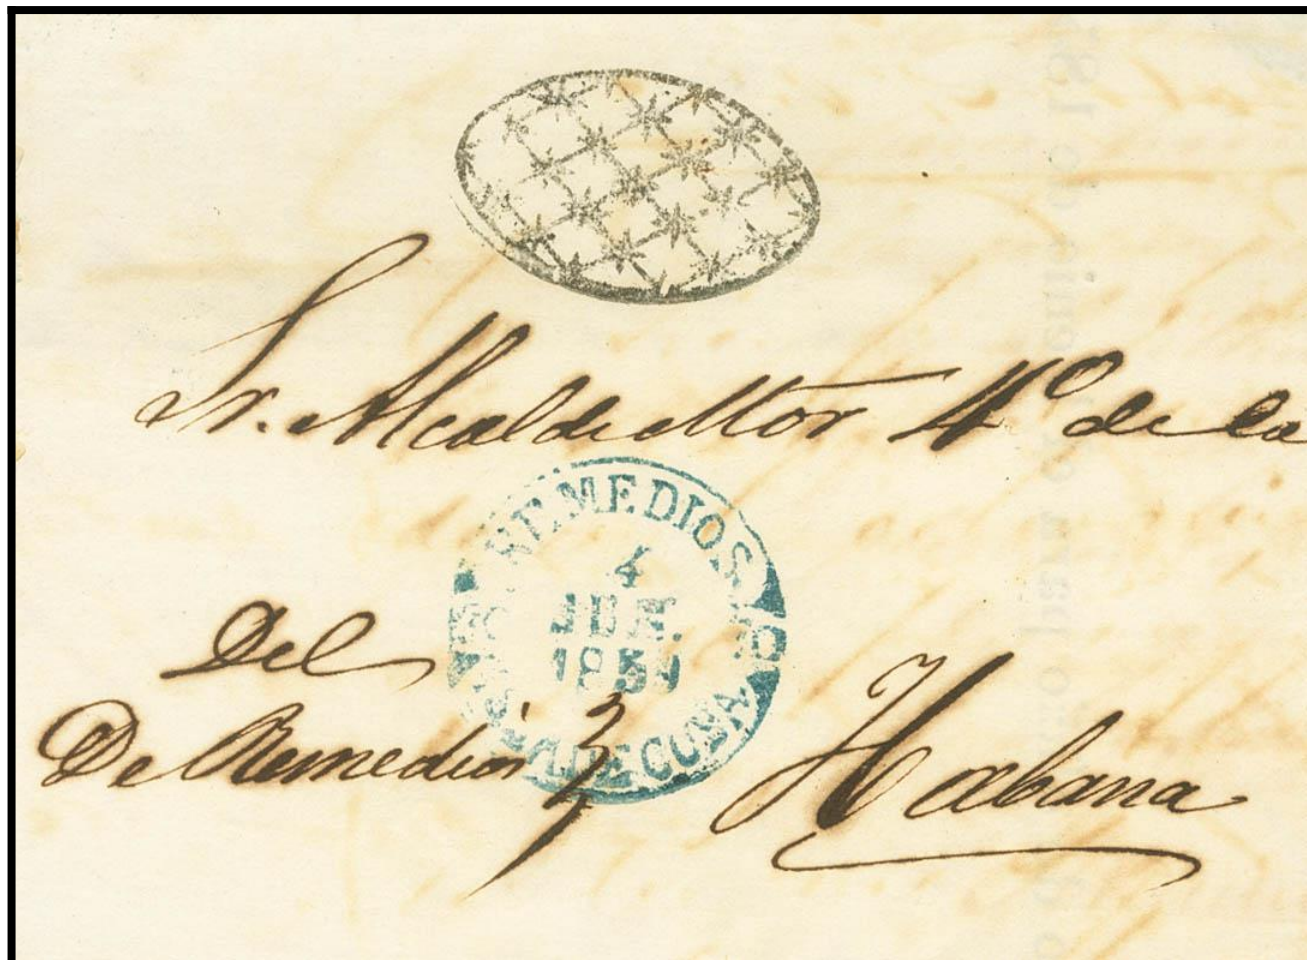 Sr. Alcalde Mor 4º de la
REMEDIOS
4
JUN.
DE CUBA
Del
De Remedios
Habana